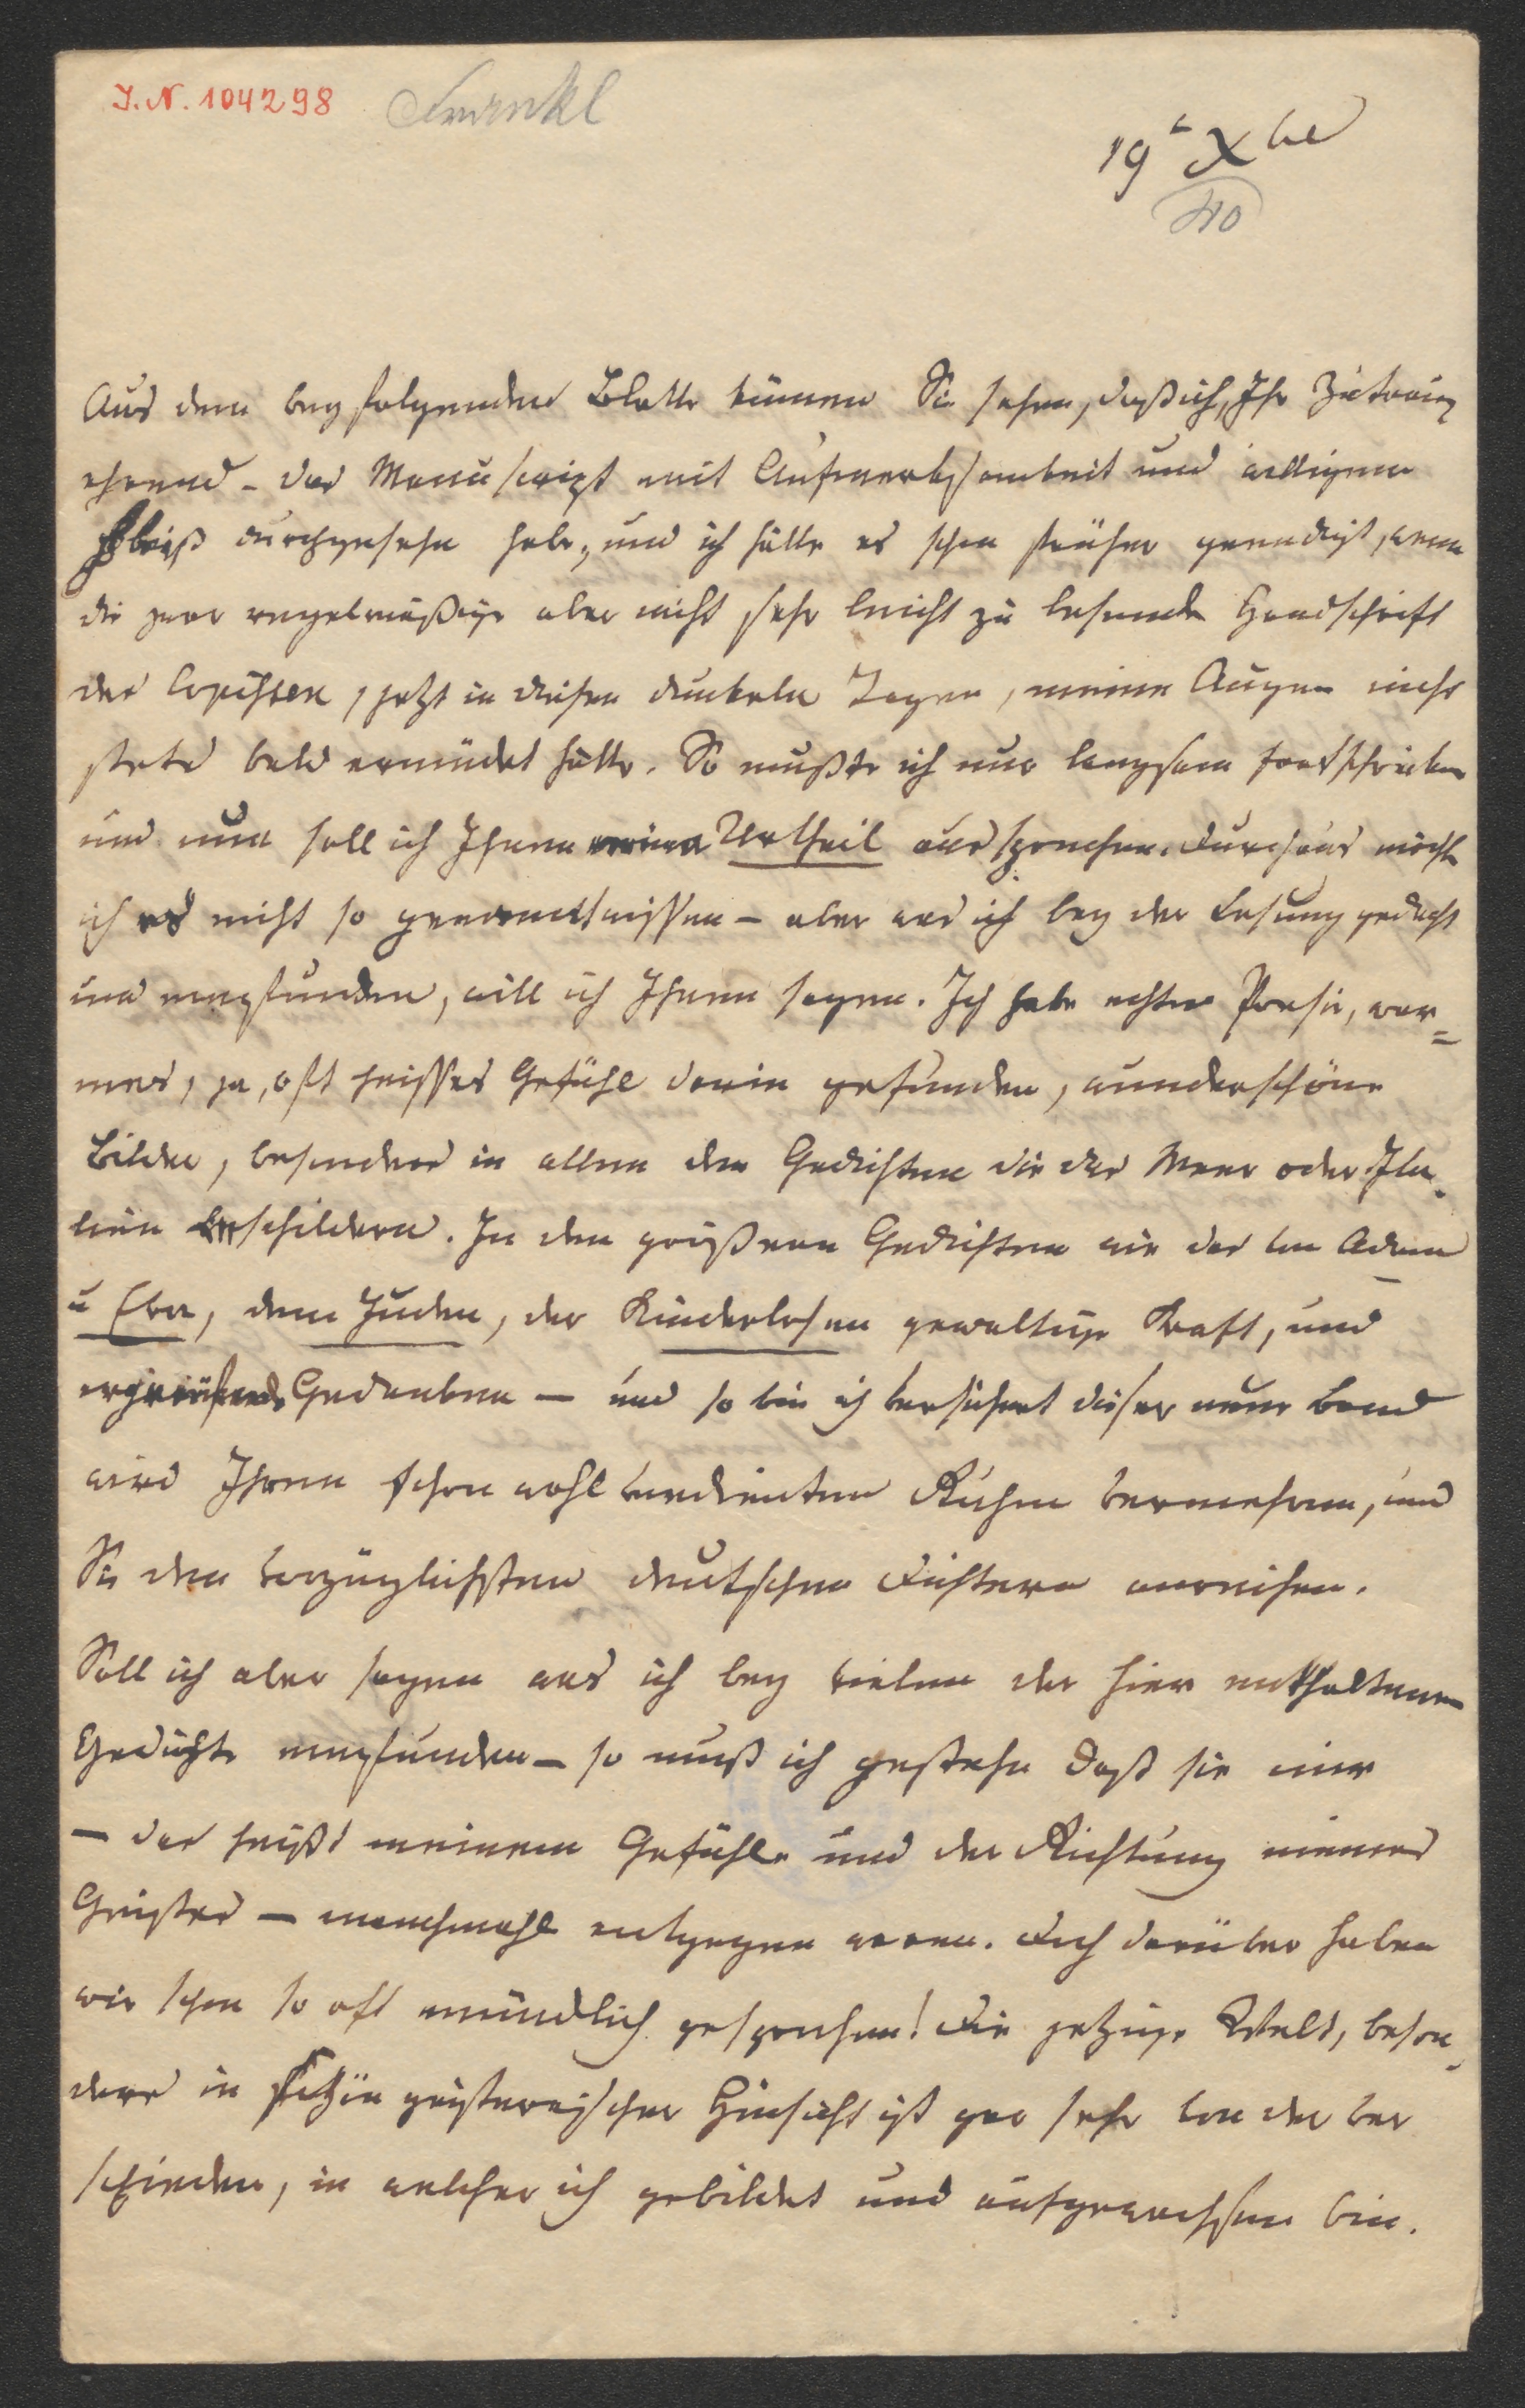 I. N. 104298 Frankl
19t Xbe
40
Aus dem beyfolgenden Blatte können Sie sehen, daß ich, Ihr Zutrauen
ehrend – das Manuscript mit Aufmerksamkeit und
Fleiß durchgesehn habe, und ich hätte es schon früher geendigt, wenn
die zwar regelmäßige aber nicht sehr leicht zu lesende Handschrift
des Copisten, jetzt in diesen dunkeln Tagen, meine Augen nicht
stets bald ermüdet hätte. So mußte ich nur langsam fortschreiten
und nun soll ich Ihnen mein Urtheil aussprechen. Durchaus möcht
ich es nicht so genannt wissen – aber was ich bey der Lesung gedacht
und empfunden, will ich Ihnen sagen. Ich habe echte Poesie, war=
mes, ja, oft heisses Gefühl darin gefunden, wunderschöne
Bilder, besonders in allen den Gedichten die das Meer oder Ita-
lien schildern. In den größeren Gedichten wie das von Adam
u Eva, dem Juden, der Kinderlosen gewaltige Kraft, und
ergreifende Gedanken – und so bin ich versichert dieser neue Band
wird Ihren schon wohl verdienten Ruhm vermehren, und
Sie den vorzüglichsten deutschen Dichtern anreihen.
Soll ich aber sagen was ich bey vielen der hier enthaltenen
Gedichte empfunden – so muß ich gestehn daß sie mir
– das heißt meinem Gefühle und der Richtung meines
Geistes – manchmahl entgegen waren. Doch darüber haben
wir schon so oft mündlich gesprochen! Die jetzige Welt, beson-
ders in schöngeisterischer Hinsicht ist gar sehr von der ver
schieden, in welcher ich gebildet und aufgewachsen bin.